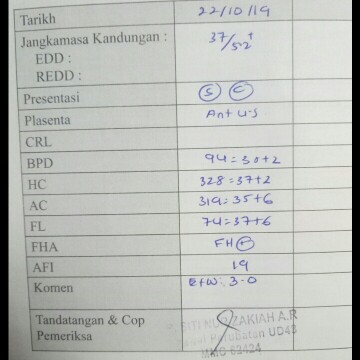 Tarikh 22/10/19
Jangkamasa Kandungan : 37/52+
EDD :
REDD :
Presentasi S C
Plasenta Ant US
CRL
BPD 94=30+2
HC 328=37+2
AC 319=35+6
FL 74=37+6
FHA FH+
AFI 19
Komen EFW: 3.0
Tandatangan & Cop
Pemeriksa
ZAKIAH A.R
UD43
MMC 62424